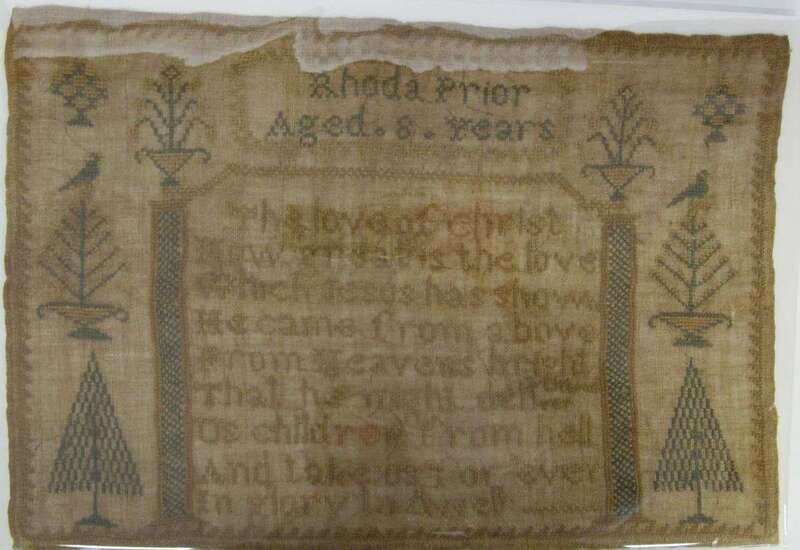 Rhoda Prior
Aged . 8 . Years
The love of Christ
How great is the love
Which Jesus has shown
He came from above
From Heavens bright
That he might
Us children from hell
And take us for ever
In glory to dwell